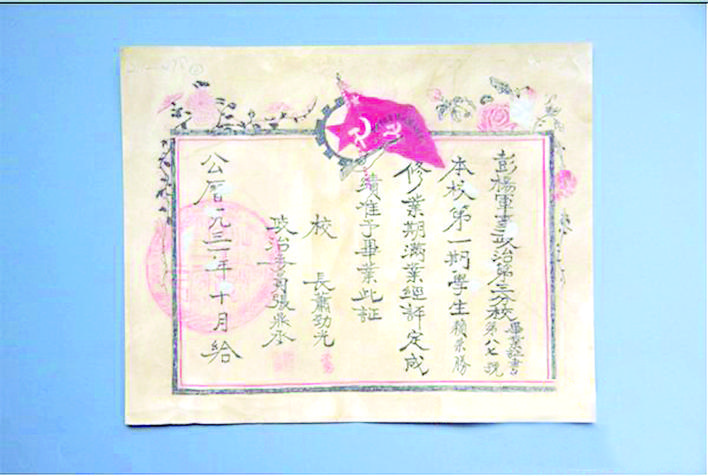 彭楊軍事政治第三分校畢業証書
第八七號
本校第一期學生賴榮勝
修業期滿業經評定成
績准予畢業此証
校長蕭勁光
政治委員張
公曆一九三一年十月給